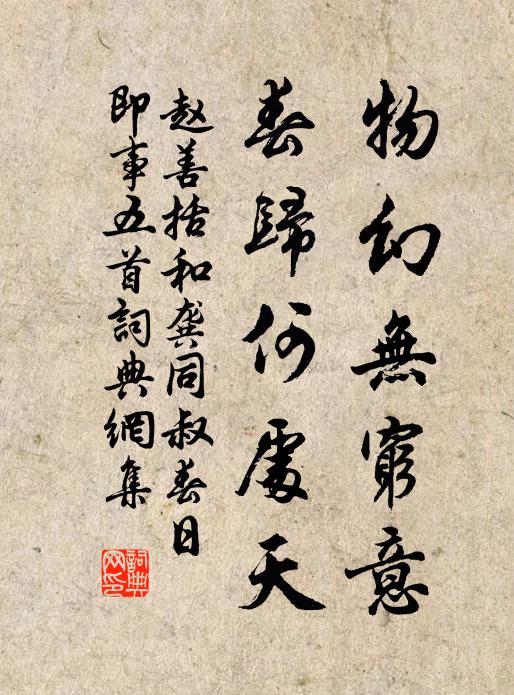 物幻無窮意
春歸何處天
赵善括和龚同叔春日
即事五首詞典網集
詞典網印